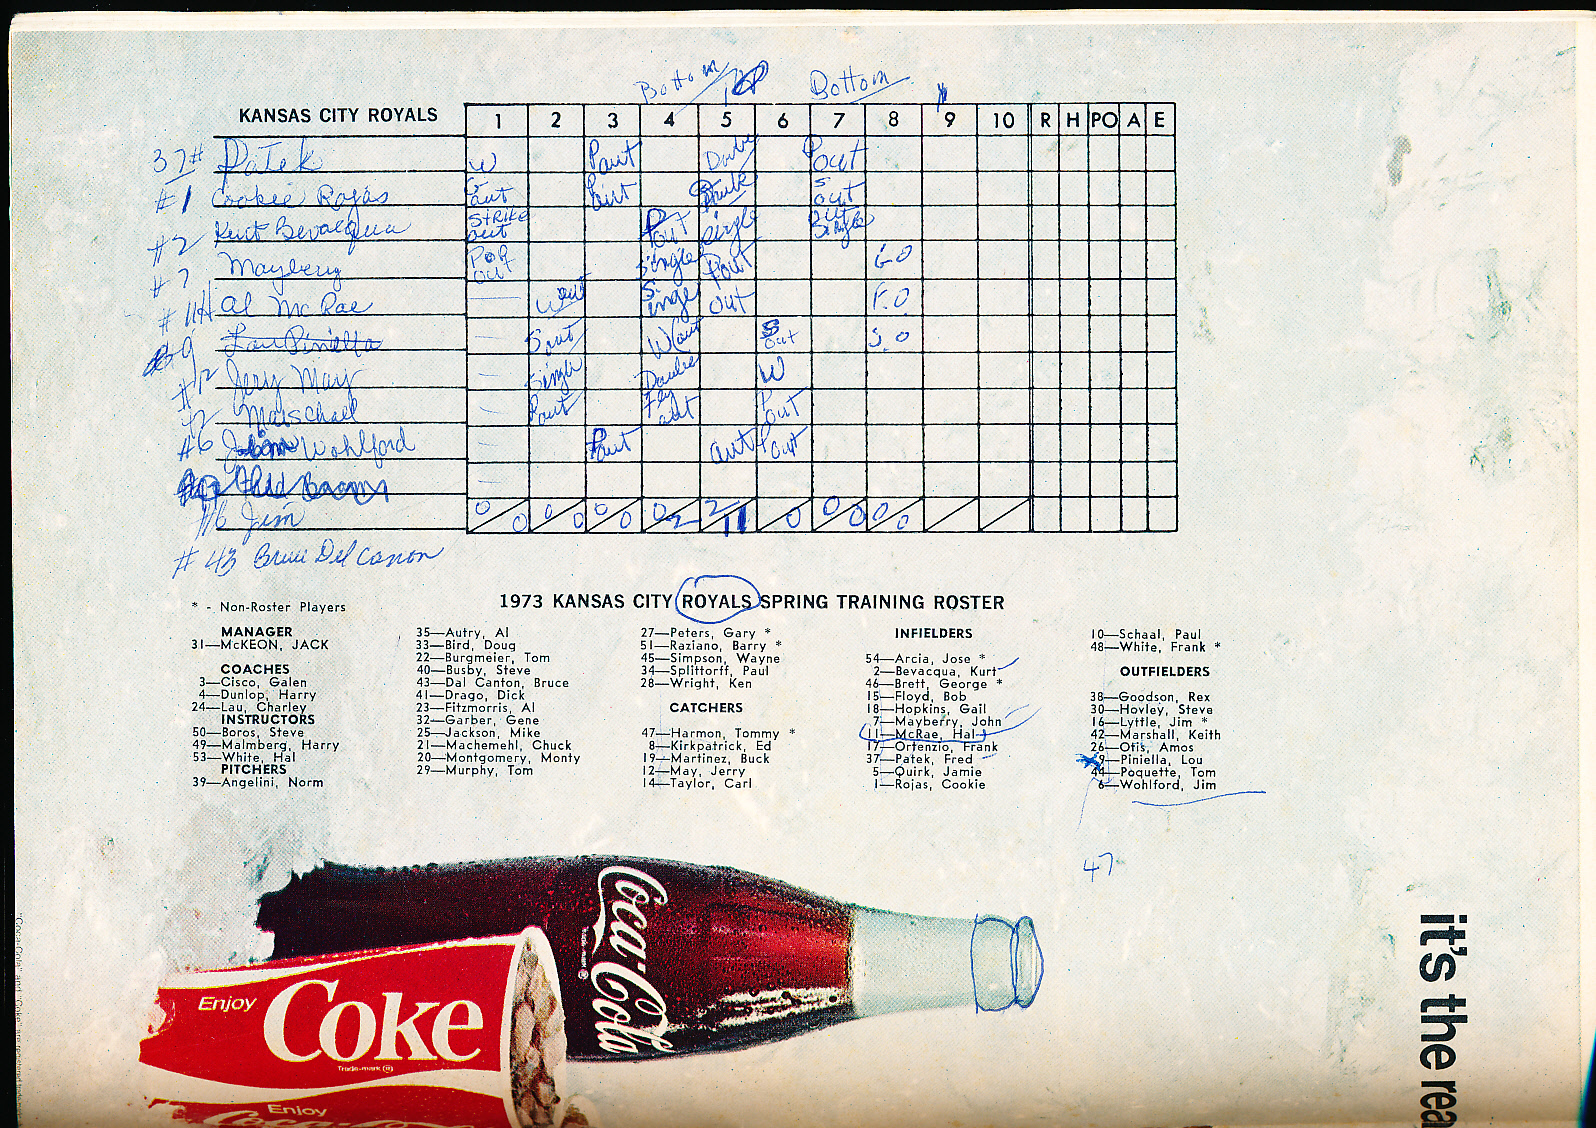 Bottom Bottom
KANSAS CITY ROYALS 1 2 3 4 5 6 7 8 9 10 R H PO A E
37# Patek W Pout Double Pout
#1 Cookie Rojas out Pout S out
#2 Kurt Bevacqua Strike out Pout single Single
#7 Mayberry Pop out Single Pout GO
#11 Al McRae Single out F.O
#9 Lou Piniella Sout W S out S.O
#12 Jery May Single Double W
Marschael Pout Fly out Pout
#6 Jim Wohlford Pout out Pout
#6 Jim 0/0 0/0 0/0 0/2 2/ 0 0/0 0/0
#43 Bruce Del Canon
* - Non-Roster Players
1973 KANSAS CITY ROYALS SPRING TRAINING ROSTER
MANAGER
31—McKEON, JACK
COACHES
3—Cisco, Galen
4—Dunlop, Harry
24—Lau, Charley
INSTRUCTORS
50—Boros, Steve
49—Malmberg, Harry
53—White, Hal
PITCHERS
39—Angelini, Norm
35—Autry, Al
33—Bird, Doug
22—Burgmeier, Tom
40—Busby, Steve
43—Dal Canton, Bruce
41—Drago, Dick
23—Fitzmorris, Al
32—Garber, Gene
25—Jackson, Mike
21—Machemehl, Chuck
20—Montgomery, Monty
29—Murphy, Tom
27—Peters, Gary *
51—Raziano, Barry *
45—Simpson, Wayne
34—Splittorff, Paul
28—Wright, Ken
CATCHERS
47—Harmon, Tommy *
8—Kirkpatrick, Ed
19—Martinez, Buck
12—May, Jerry
14—Taylor, Carl
INFIELDERS
54—Arcia, Jose *
2—Bevacqua, Kurt
46—Brett, George *
15—Floyd, Bob
18—Hopkins, Gail
7—Mayberry, John
11—McRae, Hal
17—Ortenzio, Frank
37—Patek, Fred
5—Quirk, Jamie
1—Rojas, Cookie
10—Schaal, Paul
48—White, Frank *
OUTFIELDERS
38—Goodson, Rex
30—Hovley, Steve
16—Lyttle, Jim *
42—Marshall, Keith
26—Otis, Amos
9—Piniella, Lou
44—Poquette, Tom
6—Wohlford, Jim
47
Coca-Cola
Trade-mark ®
Enjoy
Coke
Trade-mark ®
Enjoy
Coca-Cola
it's the rea